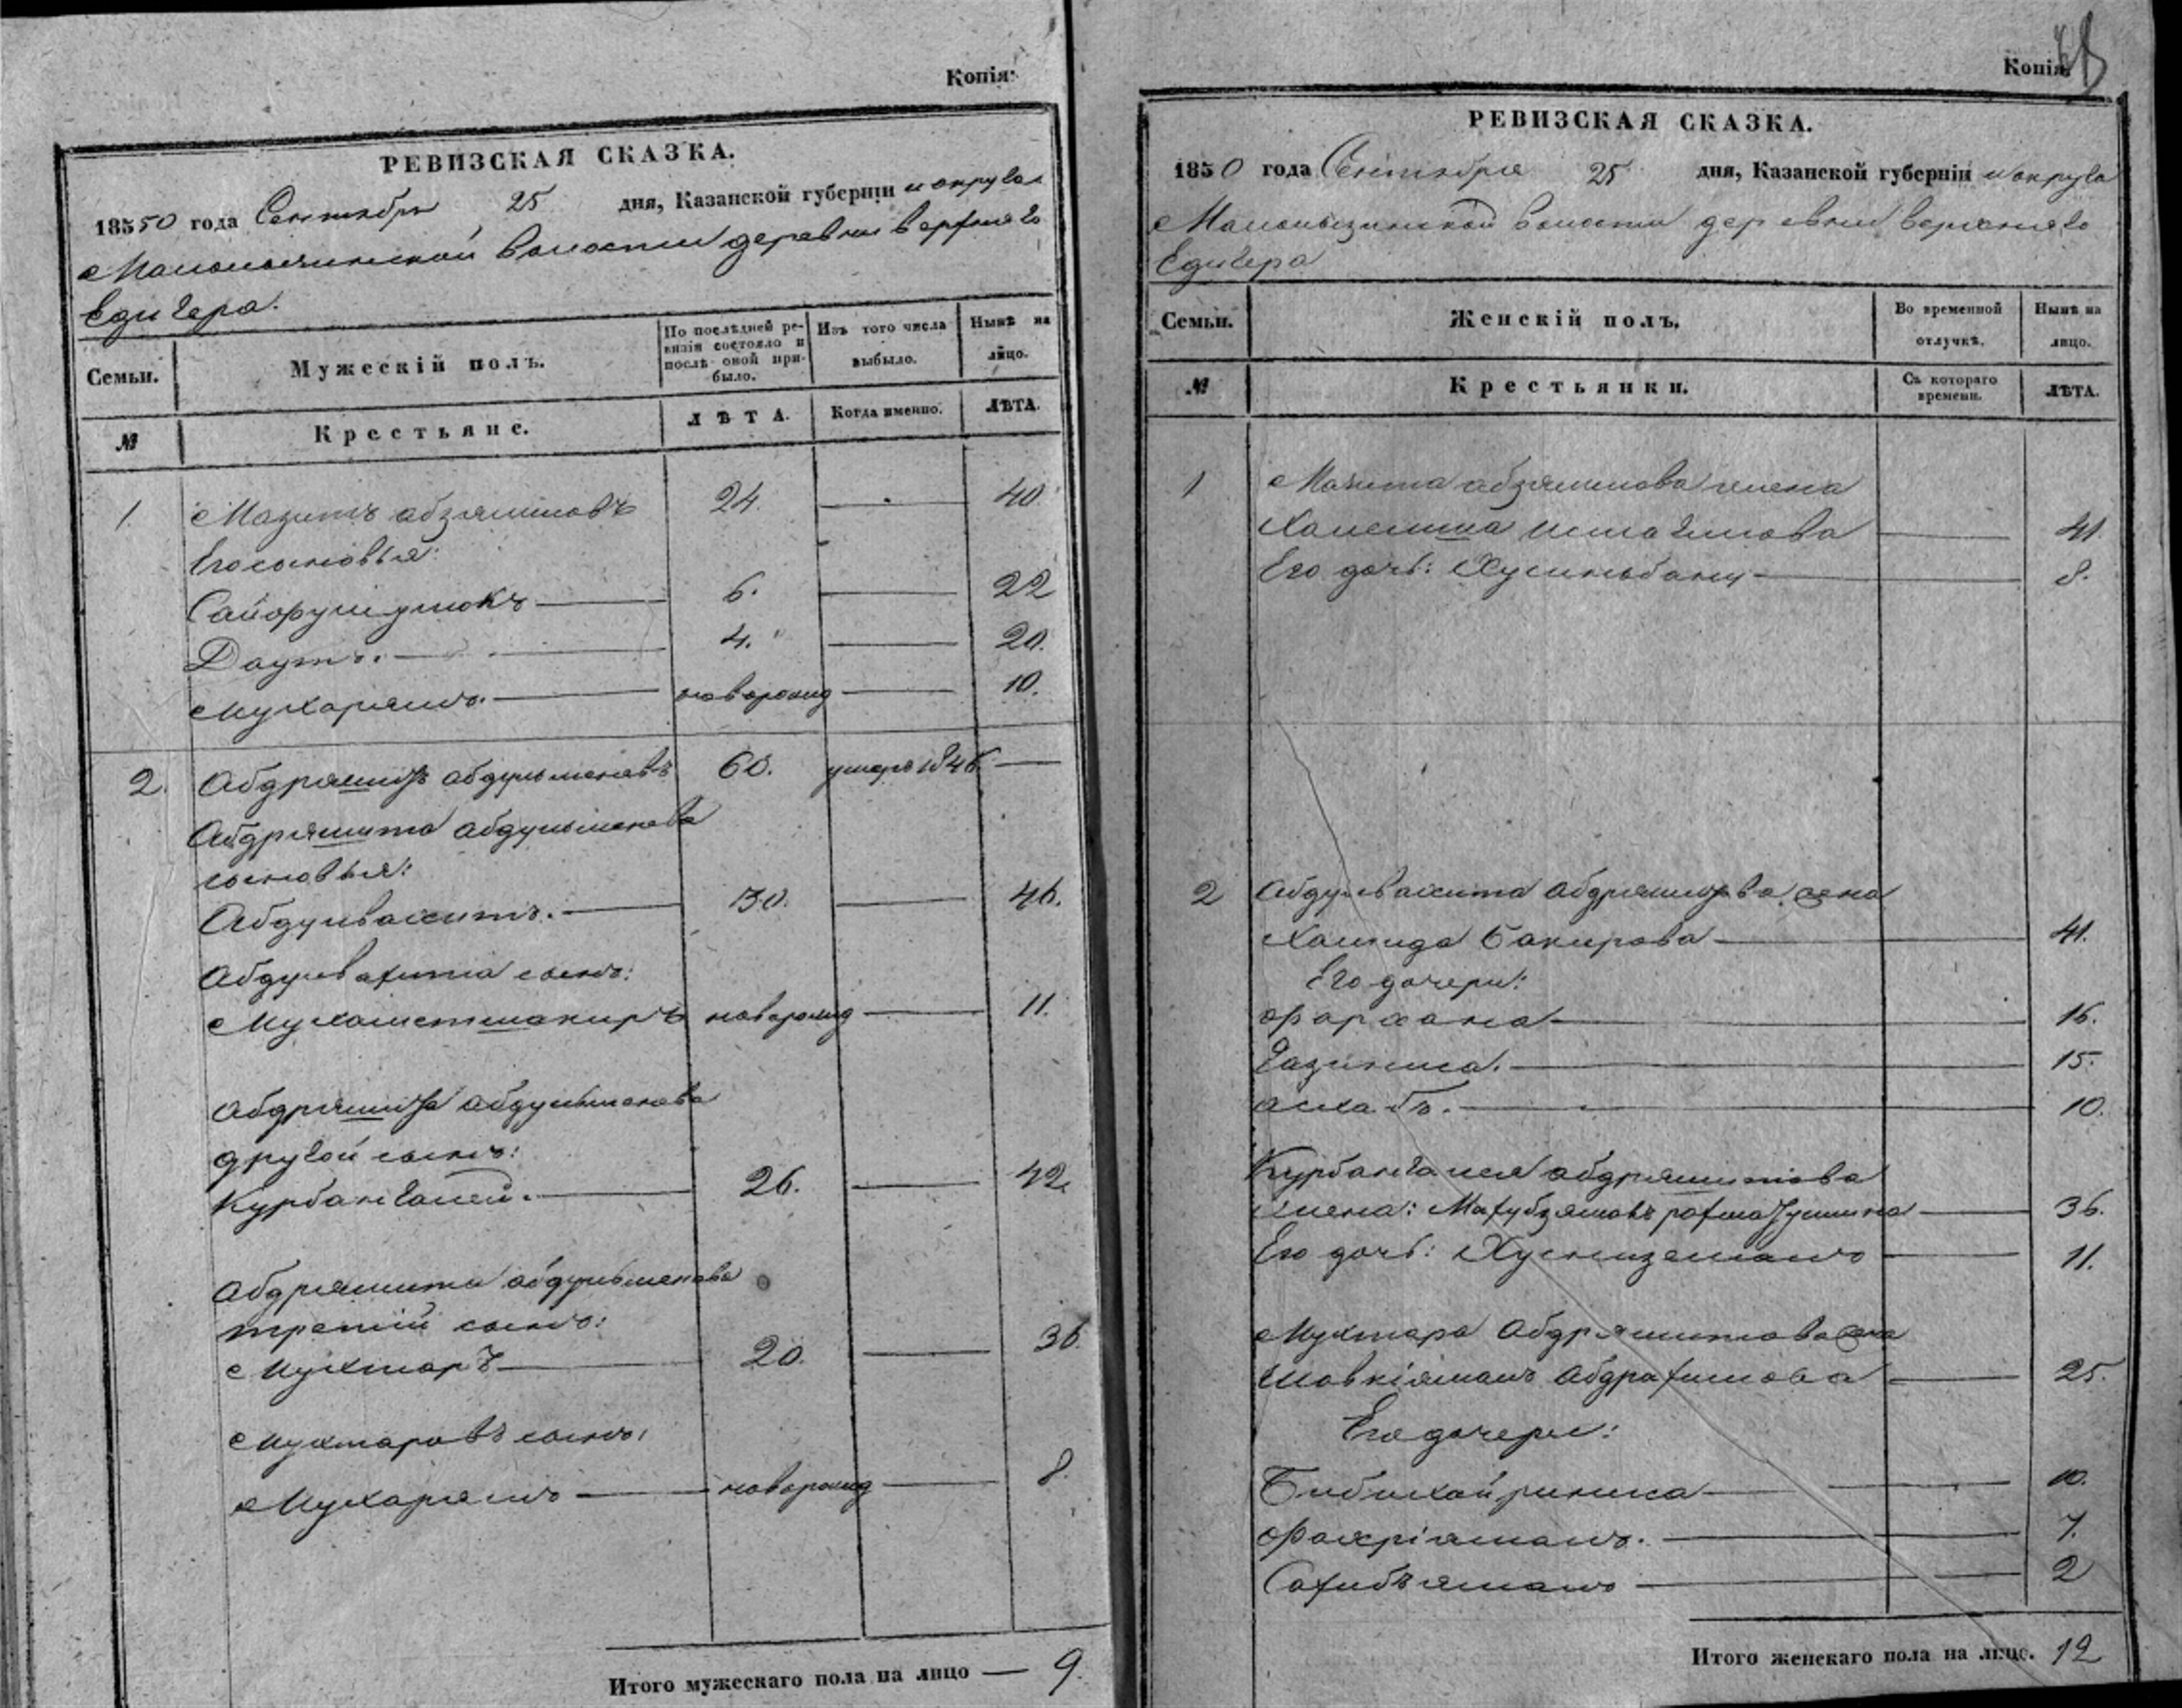 Копія:
РЕВИЗСКАЯ СКАЗКА.
18550 года Сентября 25 дня, Казанской губерніи и округа
волости деревни верхняго
Едигера.
Семьи. Мужескій полъ. По послѣдней ревизіи состояло и послѣ оной прибыло. Изъ того числа выбыло. Нынѣ на лицо.
№ Крестьяне. ЛѢТА. Когда именно. ЛѢТА.
1. Мазитъ абзялиловъ 24. — 40
Его сыновья:
6. — 22
Даутъ. — 4. — 20.
Мухарямъ. — новорожд — 10.
2. Абдряшитъ абдульменевъ 60. умеръ 1846 —
Абдряшита абдульменева
сыновья:
Абдулвахитъ. — 30. — 46.
Абдулвахита сынъ:
Мухаметшакиръ новорожд — 11.
Абдряшита абдульменева
другой сынъ:
Курбангалей. — 26. — 42.
Абдряшита абдульменева
третій сынъ:
Мухтаръ — 20. — 36.
Мухтаровъ сынъ:
Мухарямъ — новорожд — 8.
Итого мужескаго пола на лицо — 9.
Копія.
РЕВИЗСКАЯ СКАЗКА.
1850 года Сентября 25 дня, Казанской губерніи и округа
волости деревни верхняго
Едигера
Семьи. Женскій полъ. Во временной отлучкѣ. Нынѣ на лицо.
№ Крестьянки. Съ котораго времени. ЛѢТА.
1 Мазита абзялилова жена
— 41.
Его дочь: Хусныбану — 8.
2 Абдулвахита Абдряшитова жена
Хамида Бакирова — 41.
Его дочери:
Фархана — 16.
Газиниса. — 15.
асхабъ. — 10.
Курбангалея абдряшитова
жена: — 36.
Его дочь: Хуснизямалъ — 11.
Мухтара Абдряшитова жена
Шавкіямалъ Абдрахимова — 25.
Его дочери:
Бибихайриниса — 10.
Фахріямалъ. — 7.
Сахибъямалъ — 2
Итого женскаго пола на лицо. 12